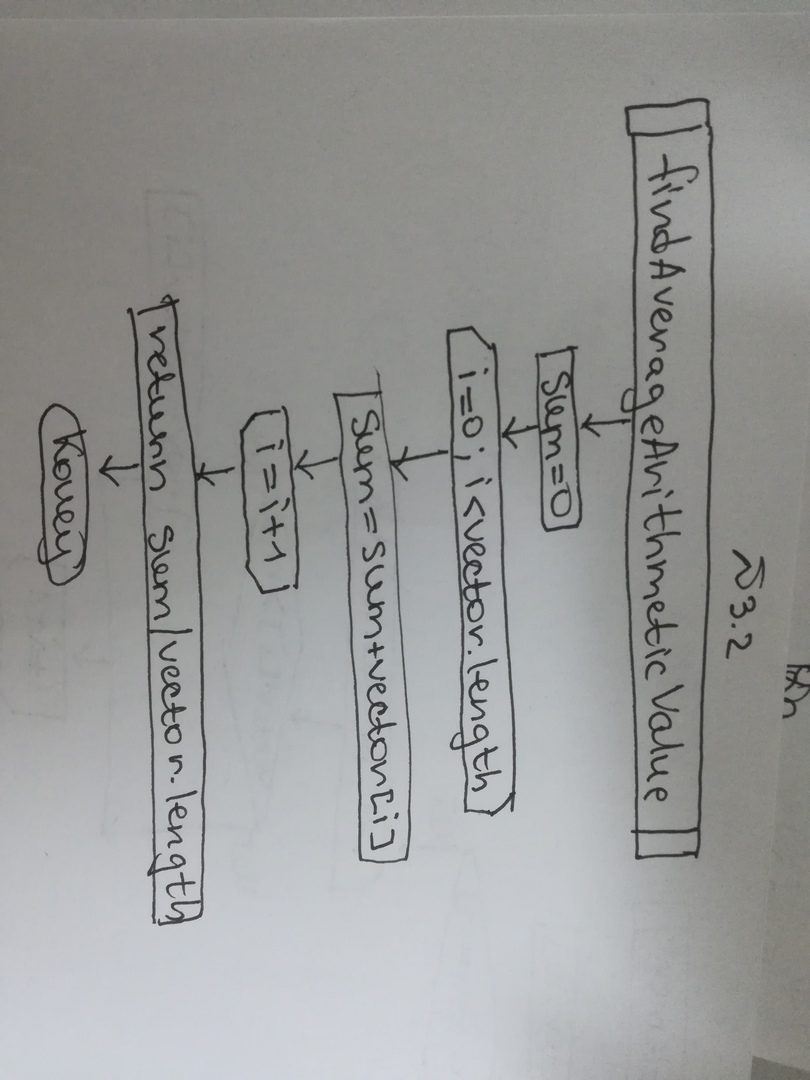 3.2
findAverageArithmeticValue
sum=0
i=0; i<vector.length
sum=sum+vector[i]
i=i+1
return sum/vector.length
Конец